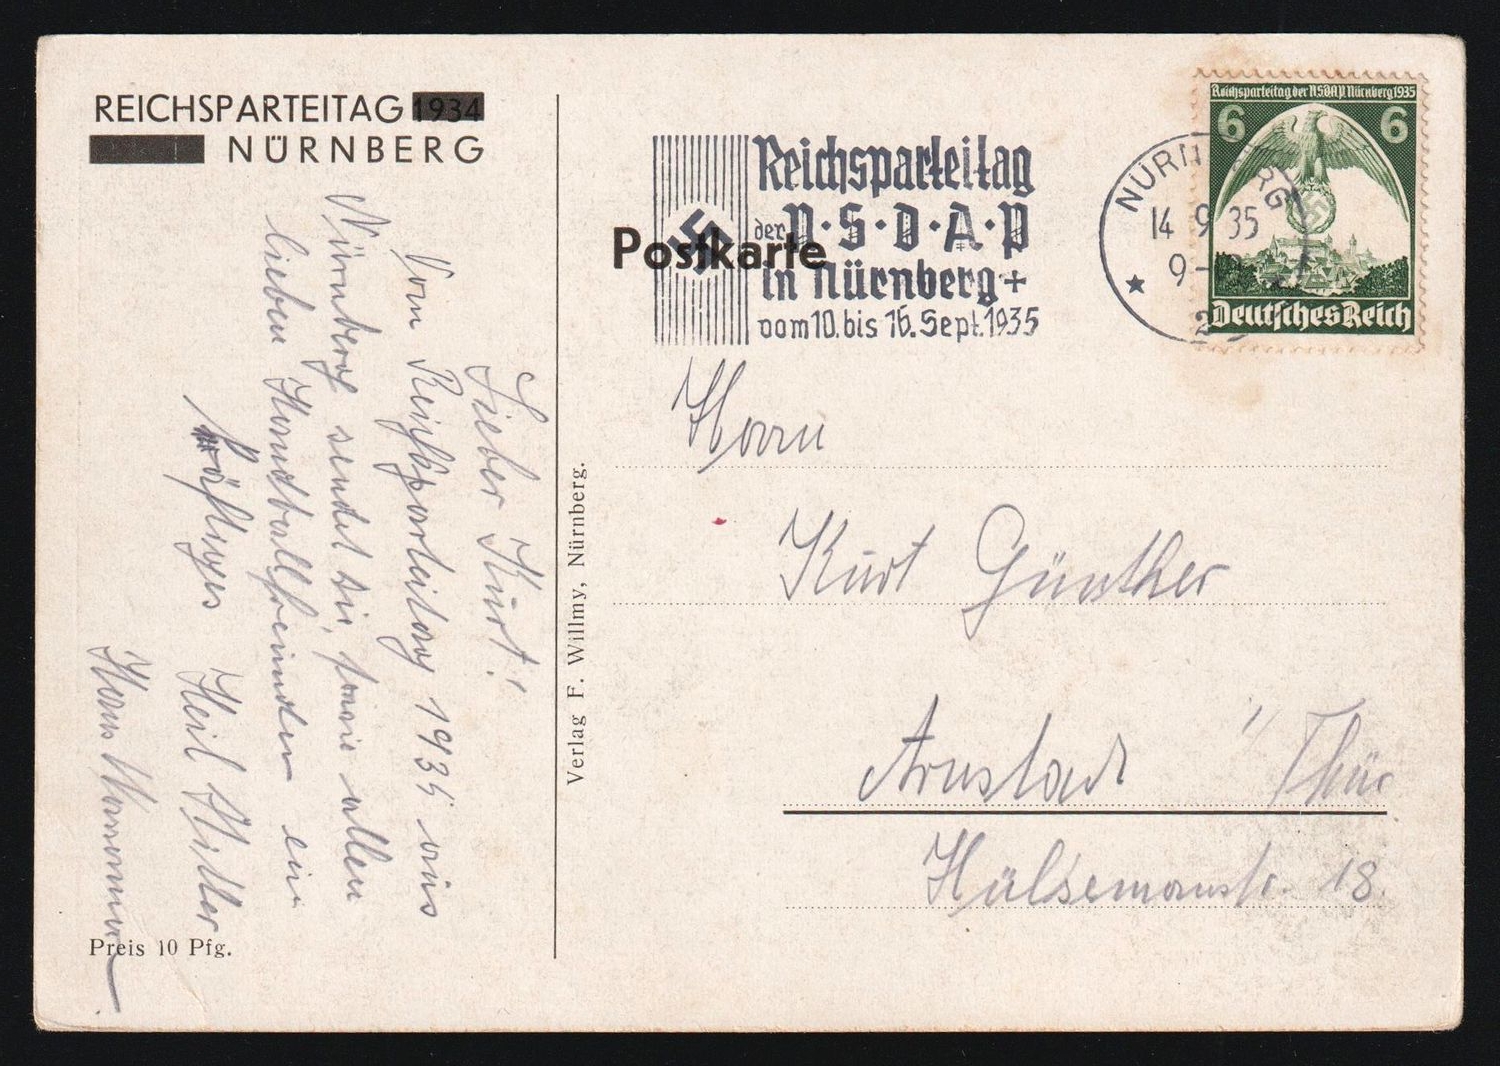 REICHSPARTEITAG 1934
NÜRNBERG
Lieber Kurt!
Vom Reichsparteitag 1935 aus
Nürnberg sendet dir, sowie allen
lieben Handballfreunden ein
kräftiges Heil Hitler
Hans
Preis 10 Pfg.
Verlag F. Willmy, Nürnberg.
Postkarte
Reichsparteitag
der N·S·D·A·P
in Nürnberg +
vom 10. bis 16. Sept. 1935
NÜRNBERG
14 9 35
9-
2
Reichsparteitag der NSDAP Nürnberg 1935
6 6
Deutsches Reich
Herrn
Kurt Günther
Arnstadt / Thür
Hülsemannstr. 18.